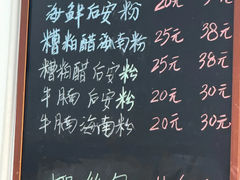 海鲜后安粉 20元 30元
糟粕醋海南粉 25元 38元
糟粕醋后安粉 25元 38元
牛腩后安粉 20元 30元
牛腩海南粉 20元 30元